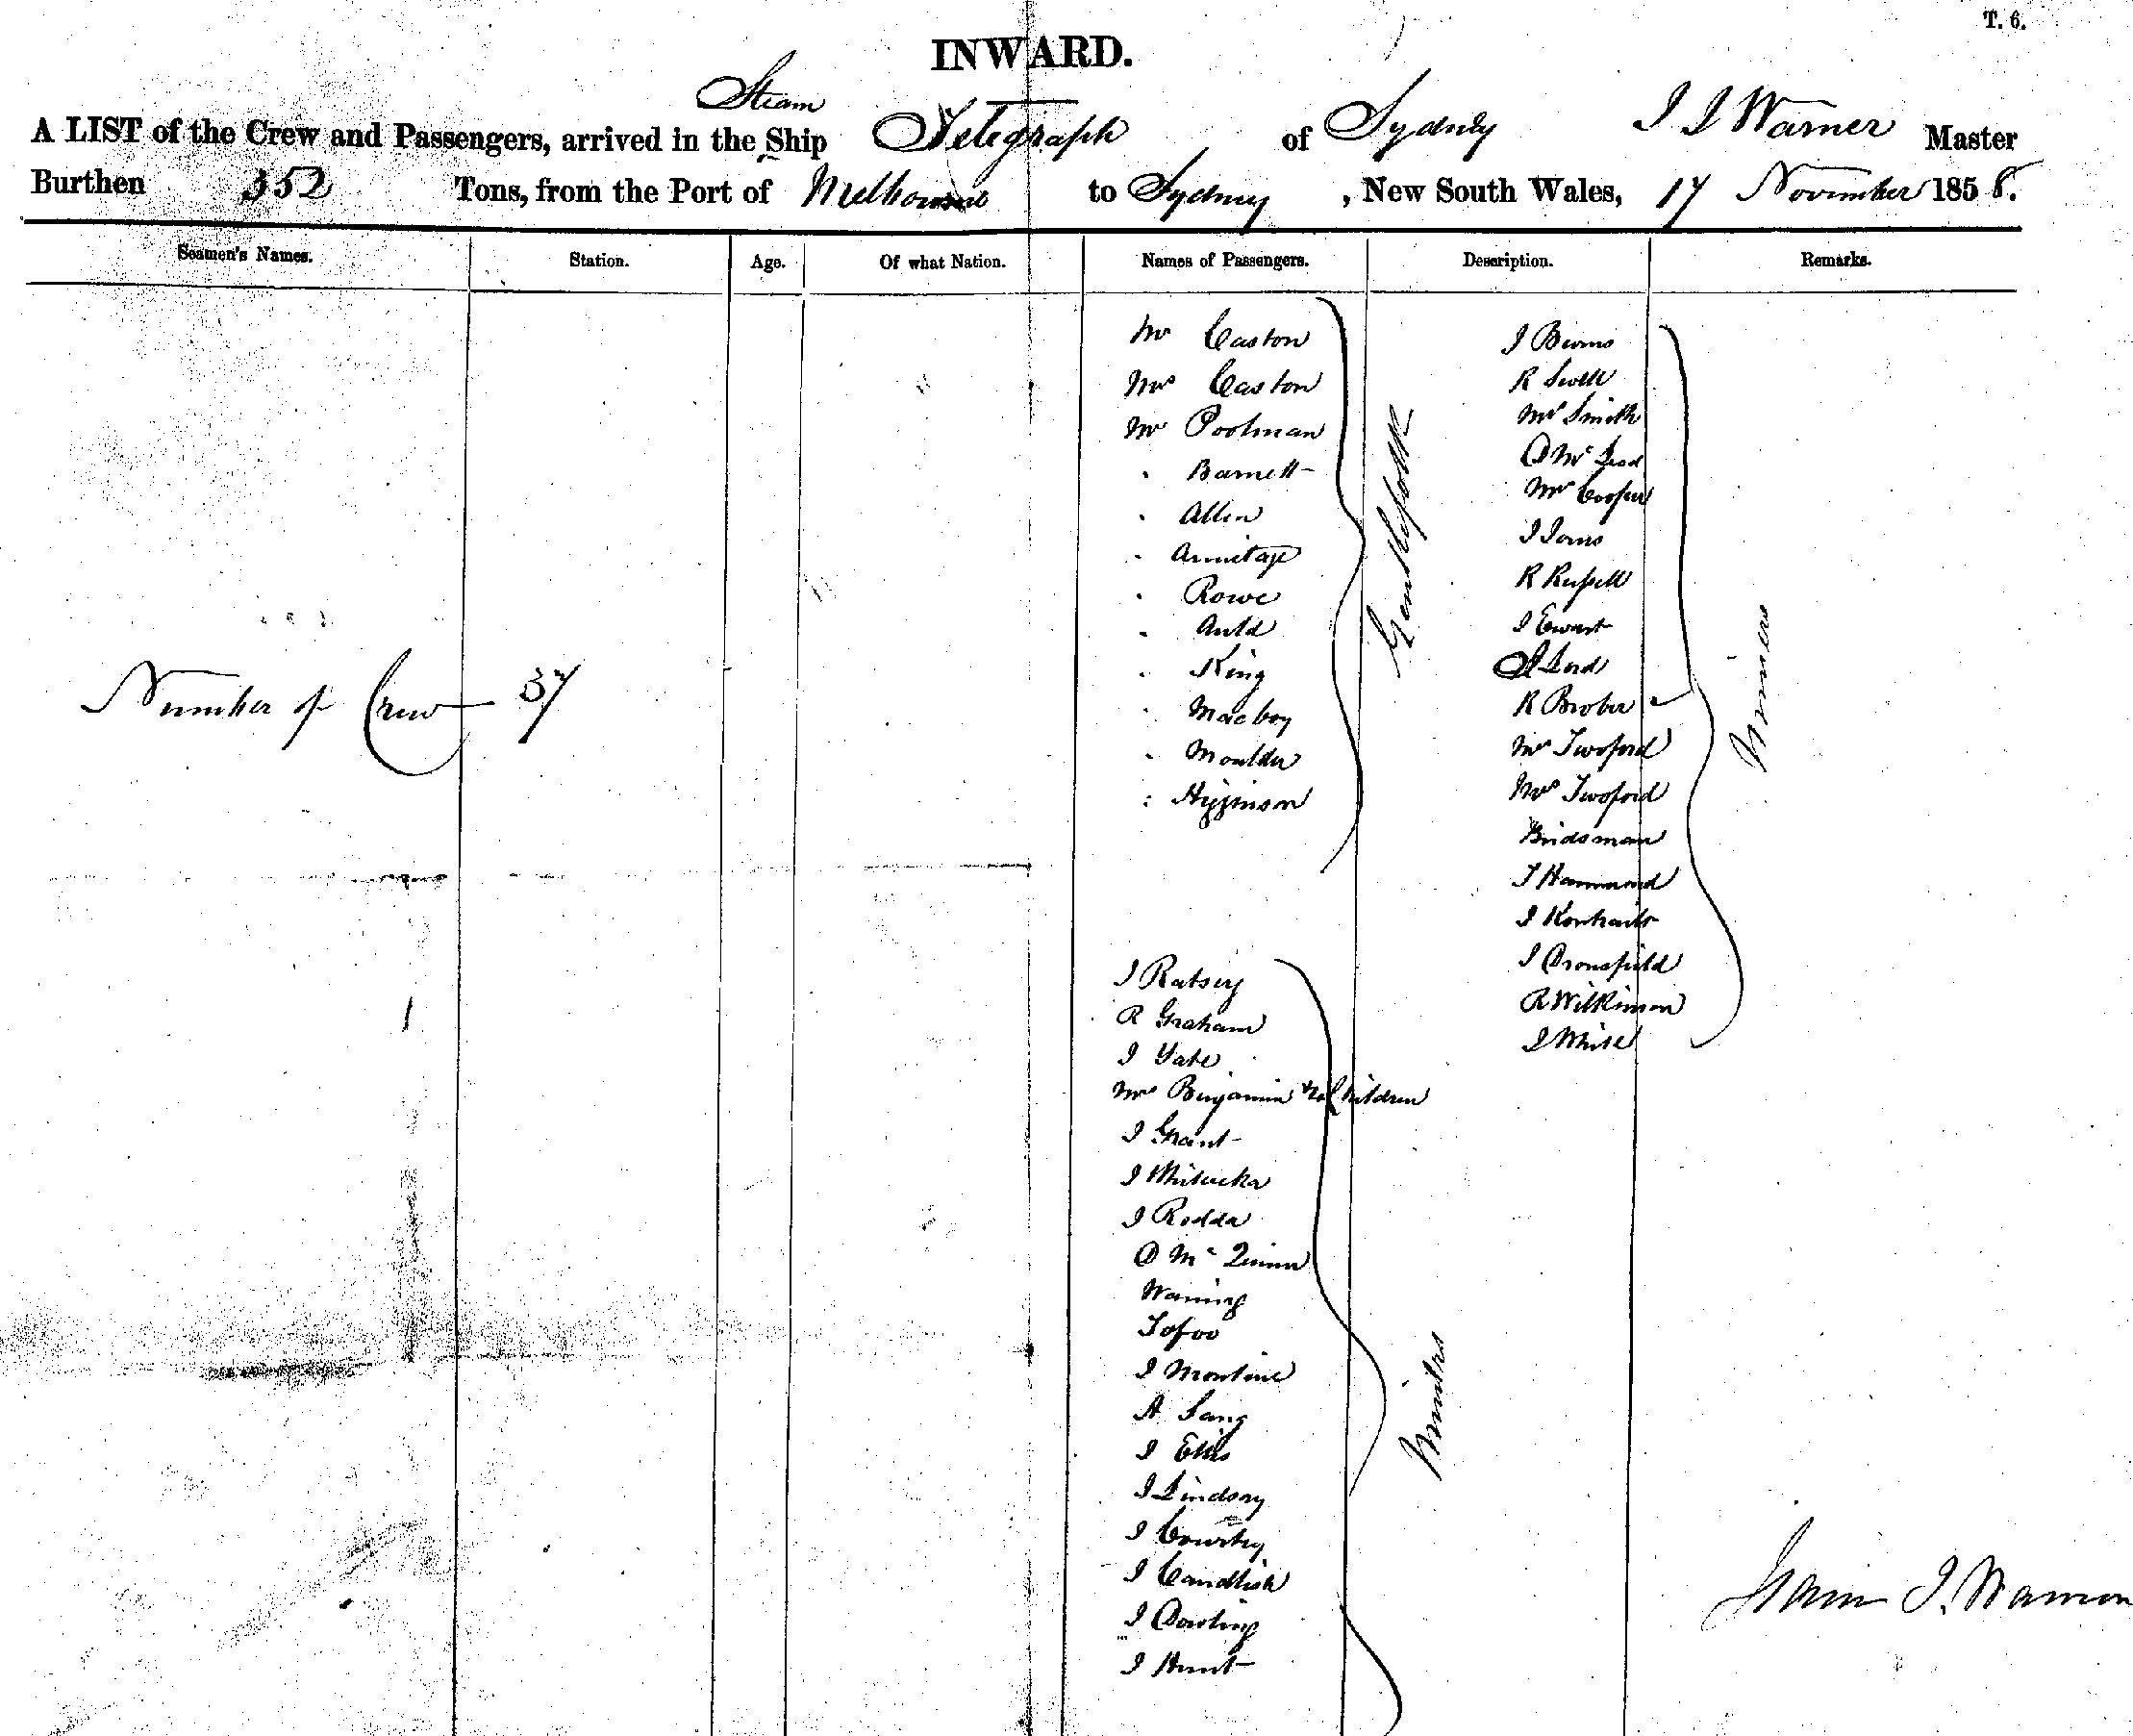 T. 6.
INWARD.
Steam
A LIST of the Crew and Passengers, arrived in the Ship Telegraph of Sydney J J Warner Master
Burthen 352 Tons, from the Port of Melbourne to Sydney, New South Wales, 17 November 1858.
Seamen's Names. Station. Age. Of what Nation. Names of Passengers. Description. Remarks.
Number of Crew 37
Mr Caston
Mrs Caston
Mr Poolman
" Barnett
" Allen
" Armitage
" Rowe
" Auld
" King
" Macboy
" Moulder
" Higginson
Gentlefolk
J Ratsey
R Graham
J Yate
Mrs Benjamin & Children
J Grant
J Whitucka
J Rodda
D Mc Quinn
Waning
Tofoo
J Montine
A Lang
J Ellis
J Lindsay
J Courtney
J Candlish
J Dowling
J Hunt
Minitrs
J Burns
R Swell
Mr Smith
D Mc Leod
Mr Cooper
J Jones
R Russell
J Ewart
J Lord
R Brober
Mr Twoford
Mrs Twoford
Bridsman
T Hammond
J
J Dronsfield
R Wilkinson
J White
Miners
J. Warner